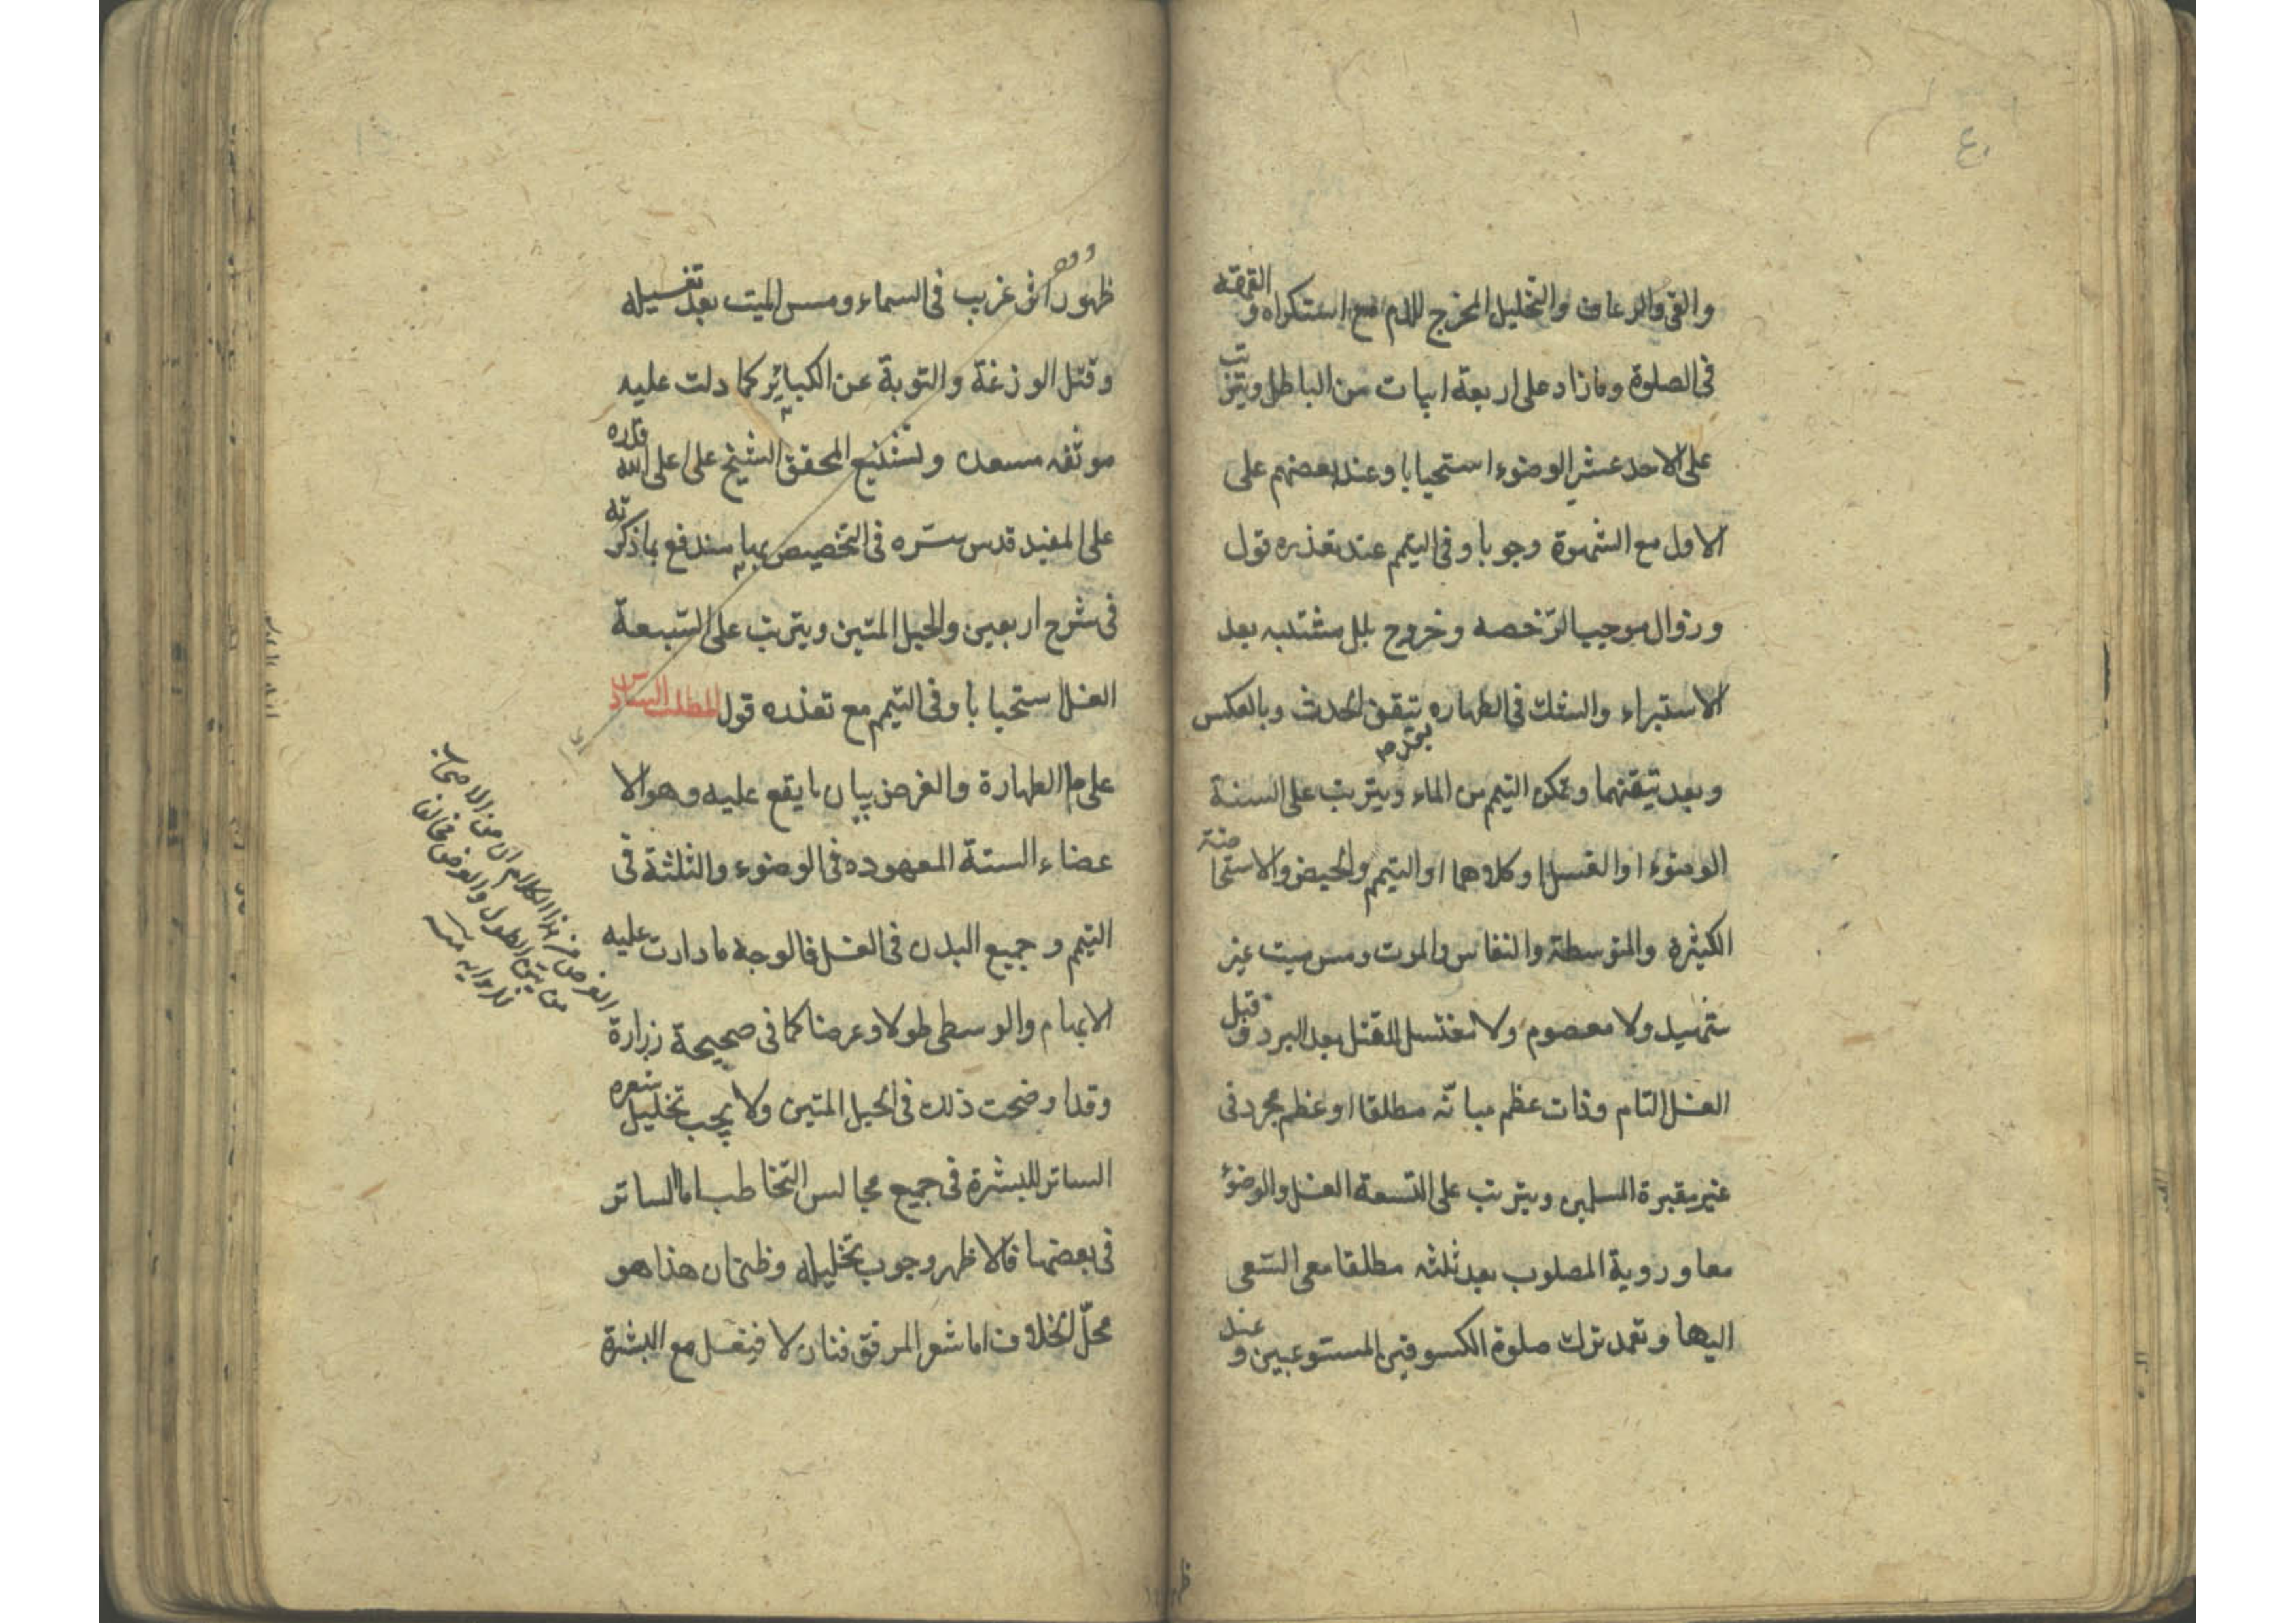 والقئ والرعاف والتخليل المخرج للدم مع استكراه و القهقهة
فى الصلوة ومازاد على اربعة ابيات من الباطل ويترتب
على الاحد عشر الوضوء استحبابا وعند بعضهم على
الاول مع الشهوة وجوبا وفى التيمم عند تعذره قول
وزوال موجب الرخصه وخروج بلل مشتبه بعد
الاستبراء والشك فى الطهاره بتيقن الحدث وبالعكس
وبعد تيقنهما وتمكن التيمم من الماء ويترتب على الستة
الوضوء او الغسل او كلاهما او التيمم والحيض والاستحاضة
الكثيرة والمتوسطة والنفاس والموت ومس ميت غير
شهيد ولا معصوم ولا مغتسل للقتل بعد البرد و قبل
الغسل التام وذات عظم مبانه مطلقا او عظم مجرد فى
غير مقبرة المسلمين ويترتب على التسعة الغسل والوضوء
معا وروية المصلوب بعد ثلثه مطلقا مع السعى
اليها وتعمد ترك صلوة الكسوفين المستوعبين و عند
ظهور اثر غريب فى السماء ومس الميت بعد تغسيله
وقتل الوزغة والتوبة عن الكبائر كما دلت عليه
موثقه مسعده وتشنيع المحقق الشيخ على اعلى الله قدره
على المفيد قدس سره فى التخصيص بها مندفع بما ذكرته
فى شرح اربعين والحبل المتين ويترتب على السبعة
الغسل استحبابا وفى التيمم مع تعذره قول المطلب السادس
على م الطهارة والغرض بيان ما يقع عليه وهو الا
عضاء الستة المعهوده فى الوضوء والثلثة فى
التيمم وجميع البدن فى الغسل فالوجه ما دارت عليه
الابهام والوسطى طولا وعرضا كما فى صحيحة زرارة
وقد اوضحت ذلك فى الحبل المتين ولا يجب تخليل شعره
الساتر للبشرة فى جميع مجالس التخاطب اما الساتر
فى بعضها فالاظهر وجوب تخليله وظنى ان هذا هو
محل الخلاف اما شعر المرفق فنان لا فيغسل مع البشرة
الغرض من هذا الكلام ان من الاصحاب
من الطول والعرض مخالفا
للرواية منه